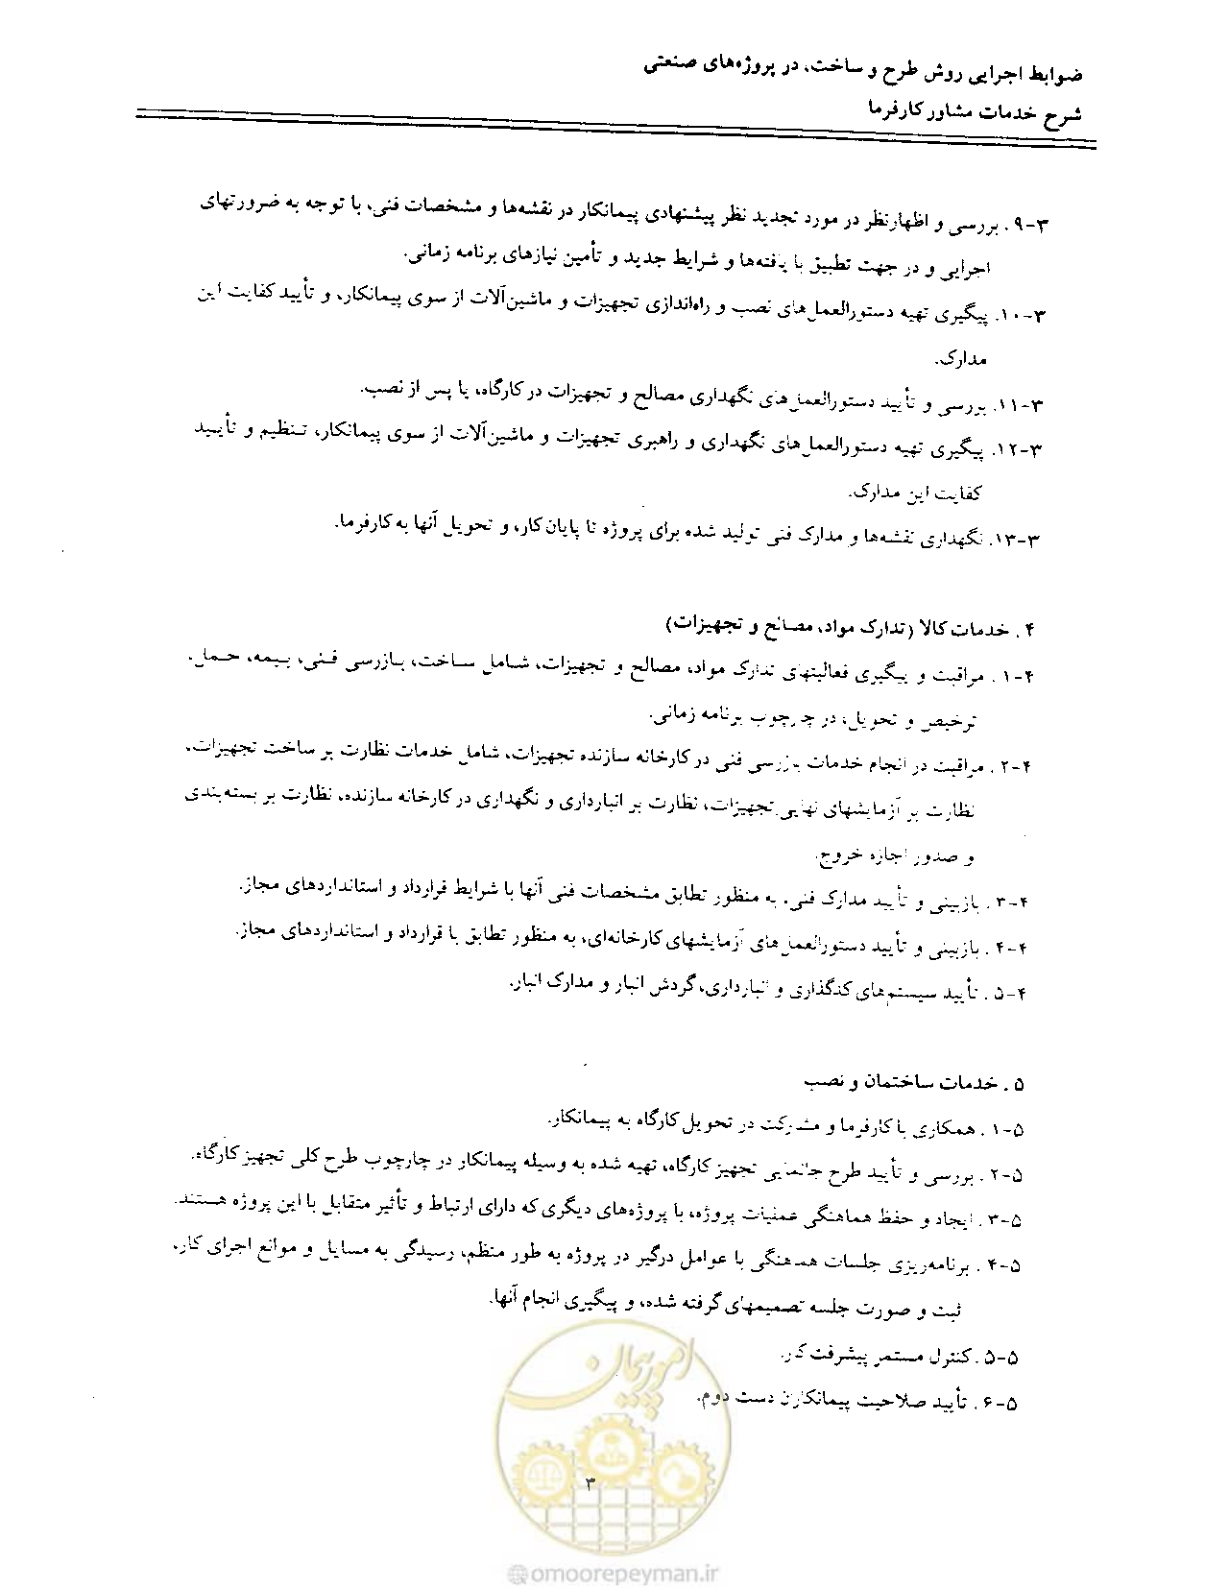 ضوابط اجرایی روش طرح و ساخت، در پروژه‌های صنعتی
شرح خدمات مشاور کارفرما
۳-۹ . بررسی و اظهارنظر در مورد تجدید نظر پیشنهادی پیمانکار در نقشه‌ها و مشخصات فنی، با توجه به ضرورتهای
اجرایی و در جهت تطبیق با یافته‌ها و شرایط جدید و تأمین نیازهای برنامه زمانی.
۳-۱۰. پیگیری تهیه دستورالعمل‌های نصب و راه‌اندازی تجهیزات و ماشین‌آلات از سوی پیمانکار، و تأیید کفایت این
مدارک.
۳-۱۱. بررسی و تأیید دستورالعمل‌های نگهداری مصالح و تجهیزات در کارگاه، یا پس از نصب.
۳-۱۲. پیگیری تهیه دستورالعمل‌های نگهداری و راهبری تجهیزات و ماشین‌آلات از سوی پیمانکار، تنظیم و تأیید
کفایت این مدارک.
۳-۱۳. نگهداری نقشه‌ها و مدارک فنی تولید شده برای پروژه تا پایان کار، و تحویل آنها به کارفرما.
۴ . خدمات کالا (تدارک مواد، مصالح و تجهیزات)
۴-۱ . مراقبت و پیگیری فعالیتهای تدارک مواد، مصالح و تجهیزات، شامل ساخت، بازرسی فنی، بیمه، حمل،
ترخیص و تحویل، در چارچوب برنامه زمانی.
۴-۲ . مراقبت در انجام خدمات بازرسی فنی در کارخانه سازنده تجهیزات، شامل خدمات نظارت بر ساخت تجهیزات،
نظارت بر آزمایشهای نهایی تجهیزات، نظارت بر انبارداری و نگهداری در کارخانه سازنده، نظارت بر بسته‌بندی
و صدور اجازه خروج.
۴-۳ . بازبینی و تأیید مدارک فنی، به منظور تطابق مشخصات فنی آنها با شرایط قرارداد و استانداردهای مجاز.
۴-۴ . بازبینی و تأیید دستورالعمل‌های آزمایشهای کارخانه‌ای، به منظور تطابق با قرارداد و استانداردهای مجاز.
۴-۵ . تأیید سیستم‌های کدگذاری و انبارداری، گردش انبار و مدارک انبار.
۵ . خدمات ساختمان و نصب
۵-۱ . همکاری با کارفرما و مشارکت در تحویل کارگاه به پیمانکار.
۵-۲ . بررسی و تأیید طرح جانمایی تجهیز کارگاه، تهیه شده به وسیله پیمانکار در چارچوب طرح کلی تجهیز کارگاه.
۵-۳ . ایجاد و حفظ هماهنگی عملیات پروژه، با پروژه‌های دیگری که دارای ارتباط و تأثیر متقابل با این پروژه هستند.
۵-۴ . برنامه‌ریزی جلسات هماهنگی با عوامل درگیر در پروژه به طور منظم، رسیدگی به مسایل و موانع اجرای کار،
ثبت و صورت جلسه تصمیمهای گرفته شده، و پیگیری انجام آنها.
۵-۵ . کنترل مستمر پیشرفت کار.
۵-۶ . تأیید صلاحیت پیمانکاران دست دوم.
امور پیمان
۳
@omoorepeyman.ir